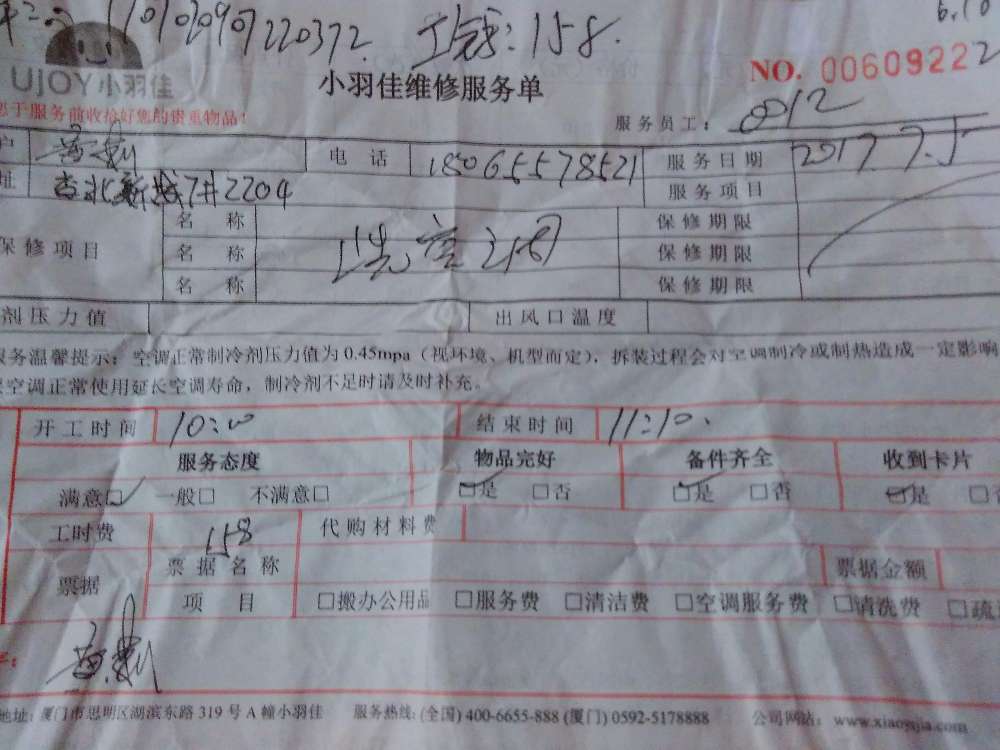 110102907220372. 158.
6.10
UJOY小羽佳
小羽佳维修服务单
NO. 006092222
您于服务前收拾好您的贵重物品!
服务员工: 0012
户 电 话 18065578521 服务日期 2017.7.5
址 2204 服务项目
保修项目 名 称 保修期限
名 称 保修期限
名 称 保修期限
剂压力值 出风口温度
服务温馨提示: 空调正常制冷剂压力值为0.45mpa（视环境、机型而定），拆装过程会对空调制冷或制热造成一定影响
空调正常使用延长空调寿命，制冷剂不足时请及时补充。
开工时间 10:00 结束时间 11:10.
服务态度 物品完好 备件齐全 收到卡片
满意□ 一般□ 不满意□ □是 □否 □是 □否 □是
工时费 158 代购材料费
票据 票据名称 票据金额
项 目 □搬办公用品 □服务费 □清洁费 □空调服务费 □清洗费 □疏
地址: 厦门市思明区湖滨东路319号A幢小羽佳 服务热线: (全国) 400-6655-888 (厦门) 0592-5178888 公司网站: www.xiaoyujia.com